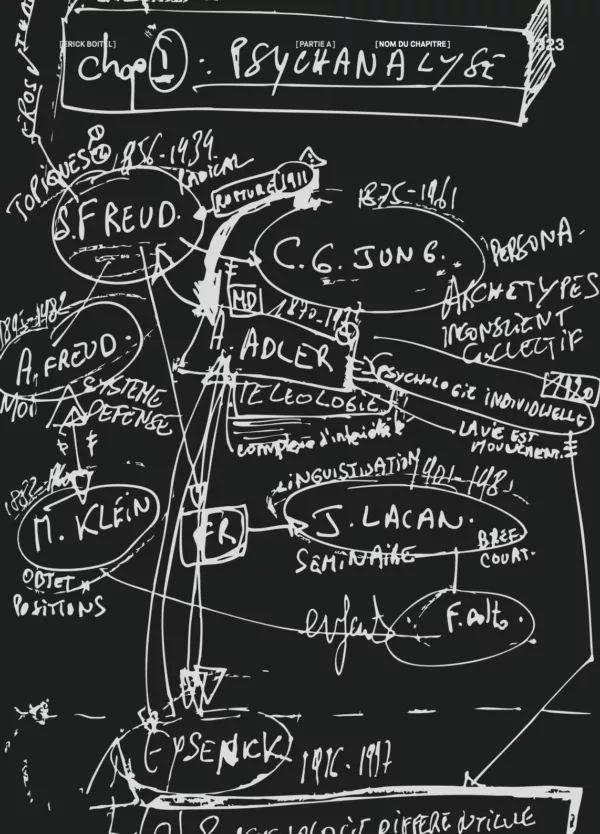 [ERICK BOITEL]
[PARTIE A]
[NOM DU CHAPITRE]
323
chap 1 : PSYCHANALYSE
TOPIQUES 2
1856-1939
RADICAL
RUPTURE 1911
S. FREUD.
1875-1961
C. G. JUNG.
PERSONA.
ARCHETYPES
INCONSCIENT
COLLECTIF
MD
A. ADLER
A. FREUD.
MOI
SYSTEME
DEFENSE
TELEOLOGIE
complexe d'infériorité
PSYCHOLOGIE INDIVIDUELLE
1920
LA VIE EST
MOUVEMENT.
LINGUISTISATION
1901-1981
M. KLEIN
FR
J. LACAN.
SEMINAIRE
COURT.
OBJET
POSITIONS
enfants
F. Dolto.
EYSENCK
1916-1997